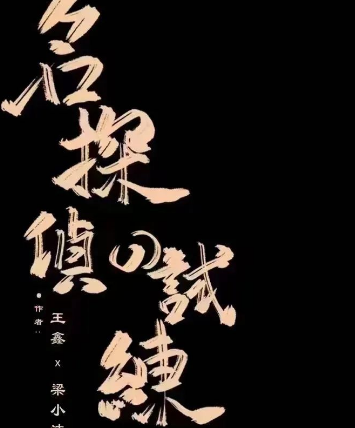 名探
偵の試
練
作者：
王鑫 x 梁小